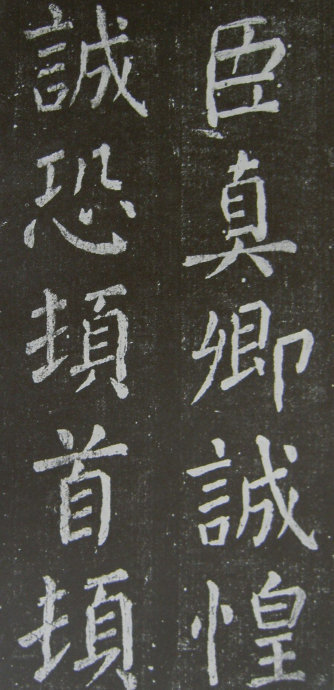 臣真卿誠惶
誠恐頓首頓